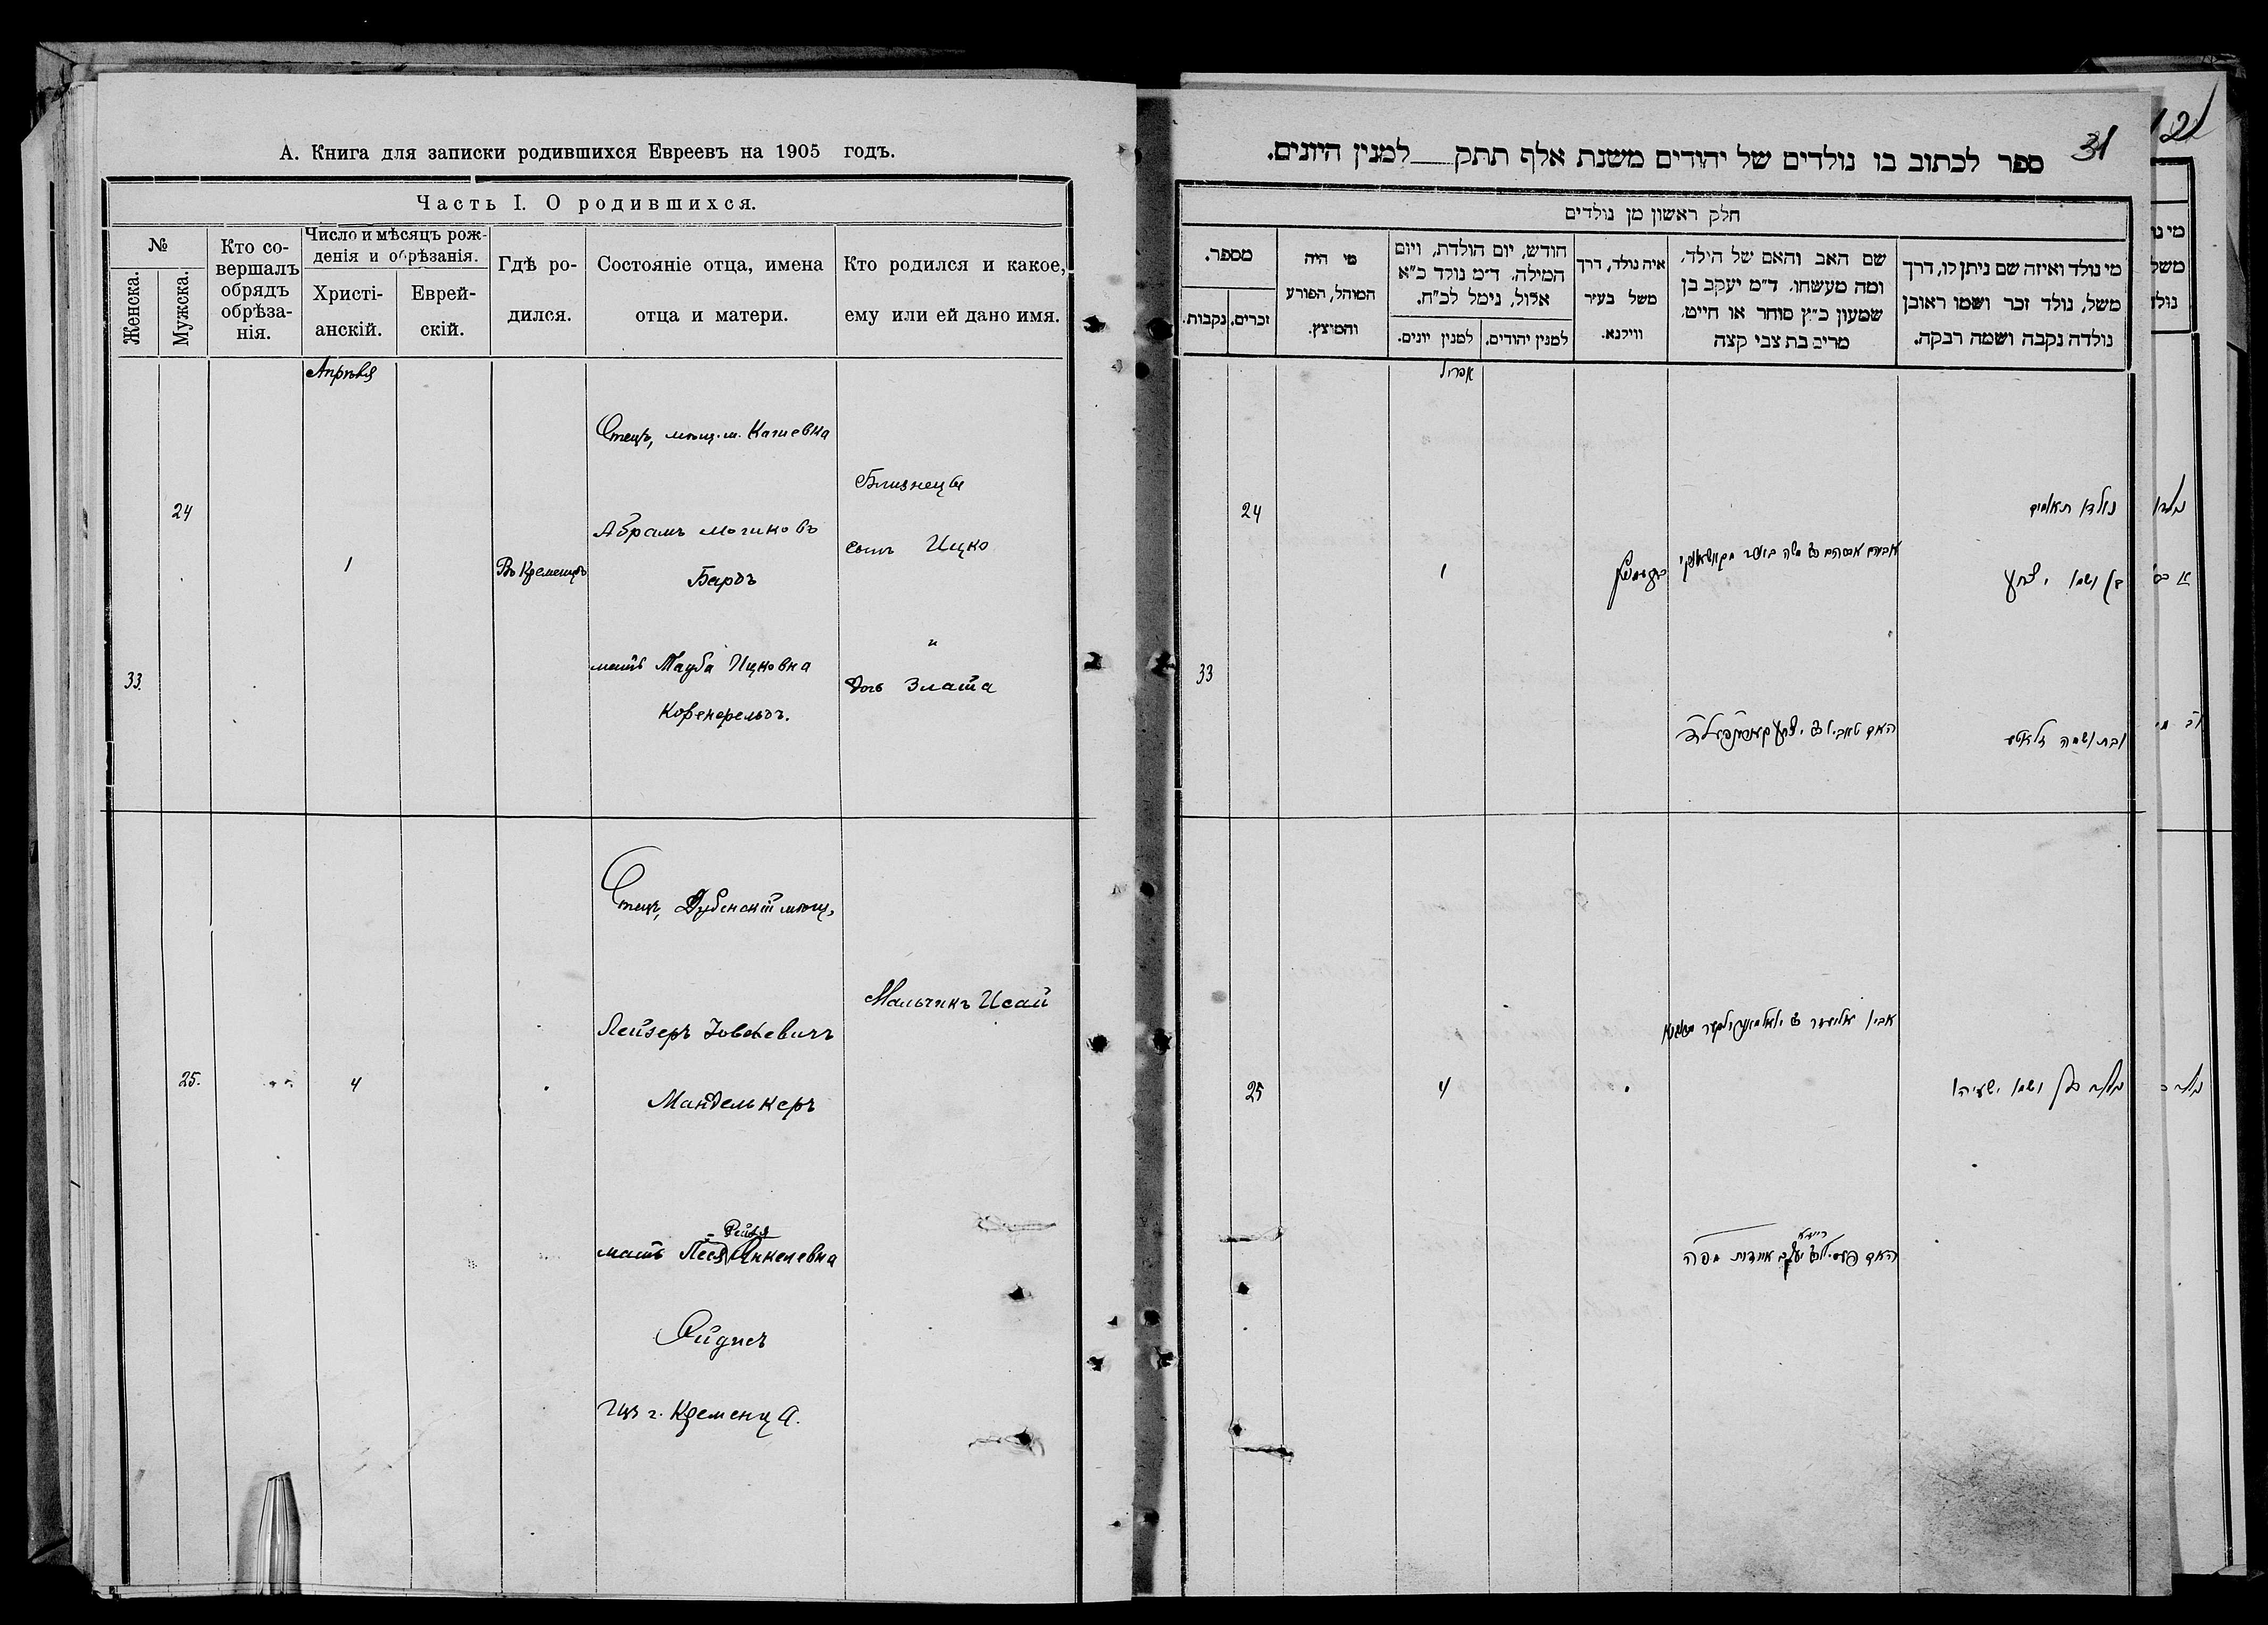 А. Книга для записки родившихся Евреевъ на 1905 годъ.
Часть I. О родившихся.
№
Женска.
Мужска.
Кто со-
вершалъ
обрядъ
обрѣза-
нія.
Число и мѣсяцъ рож-
денія и обрѣзанія.
Христі-
анскій.
Еврей-
скій.
Гдѣ ро-
дился.
Состояніе отца, имена
отца и матери.
Кто родился и какое,
ему или ей дано имя.
Апрѣля
24
33.
1
Въ Кременцѣ
Отецъ, мѣщ. м.
Абрамъ
матъ Тауба Ицковна
Близнецы
сынъ Ицко
и
дочь Злата
25.
4
Отецъ, Дубенскій мѣщ.
Лейзеръ
Манделькеръ
Рейзя
мать Песя Янкелевна
г. Кременца.
Мальчикъ Исай
31
ספר לכתוב בו נולדים של יהודים משנת אלף תתק למנין היונים.
חלק ראשון מן נולדים
מספר.
נקבות.
זכרים.
מי היה
המוהל, הפורע
והמוצץ.
חודש, יום הולדת, ויום
המילה, ד״מ נולד כ״א
אלול, נימל לכ״ח.
למנין יונים.
למנין יהודים.
איה נולד, דרך
משל בעיר
ווילנא.
שם האב והאם של הילד,
ומה מעשהו, ד״מ יעקב בן
שמעון כ״ץ סוחר או חייט,
מרים בת צבי קצה
מי נולד ואיזה שם ניתן לו, דרך
משל, נולד זכר ושמו ראובן
נולדה נקבה ושמה רבקה.
אפריל
24
33
1
נולדו תאומים
בן ושמו יצחק
ובת ושמה זלאטע
25
4
נולד בן ושמו ישעיהו
121
מי נו
משל
נולד